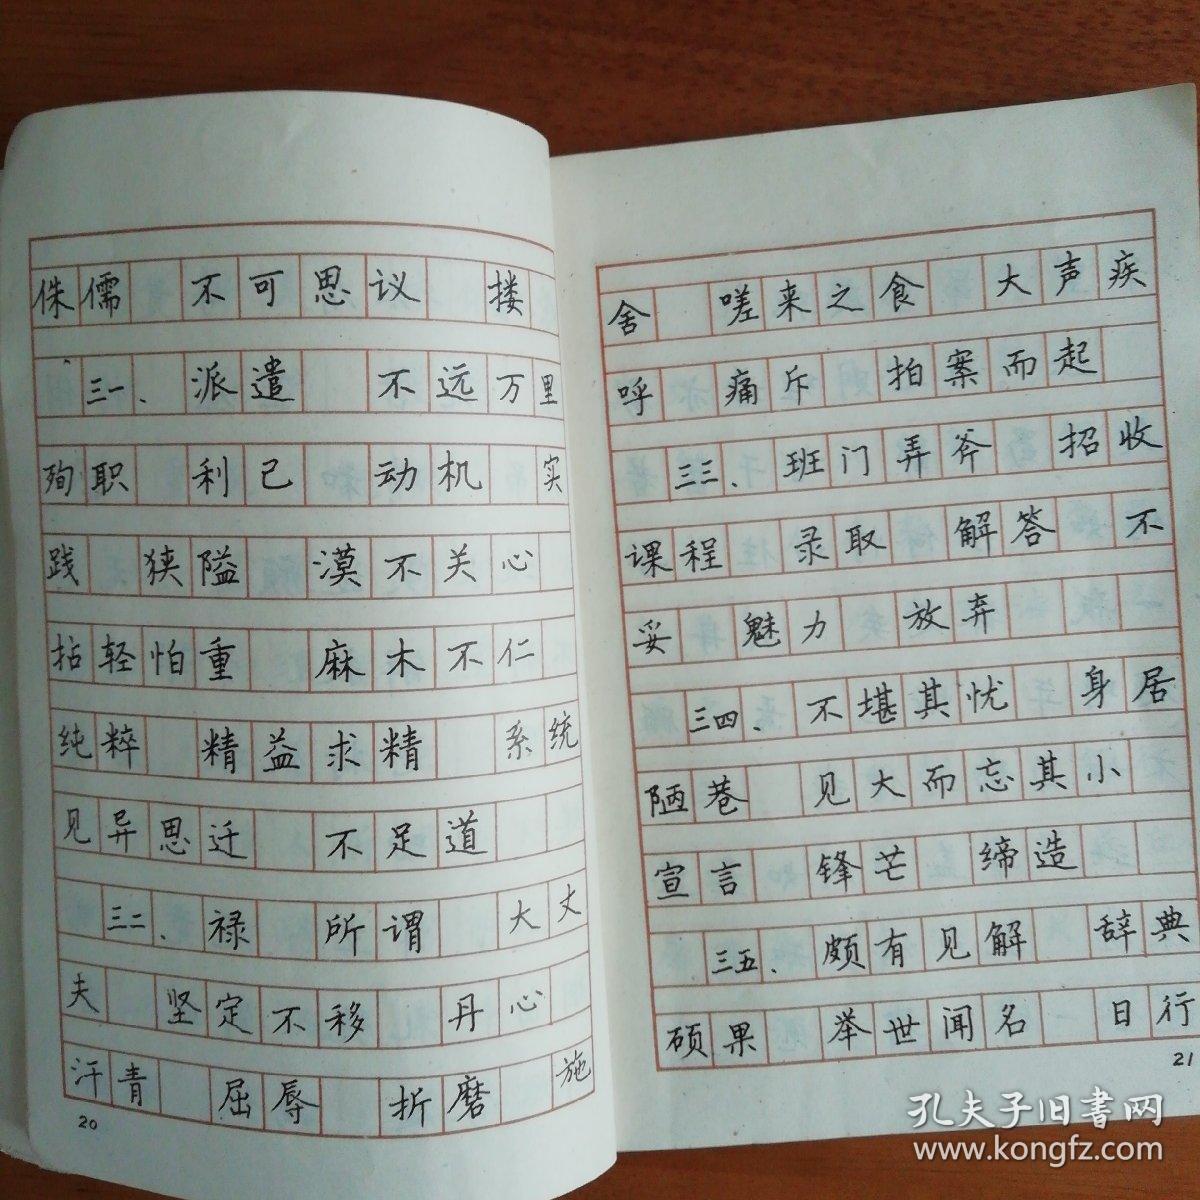 侏儒 不可思议 搂
三一、派遣 不远万里
殉职 利己 动机 实
践 狭隘 漠不关心
拈轻怕重 麻木不仁
纯粹 精益求精 系统
见异思迁 不足道
三二、禄 所谓 大丈
夫 坚定不移 丹心
汗青 屈辱 折磨 施
20
舍 嗟来之食 大声疾
呼 痛斥 拍案而起
三三、班门弄斧 招收
课程 录取 解答 不
妥 魅力 放弃
三四、不堪其忧 身居
陋巷 见大而忘其小
宣言 锋芒 缔造
三五、颇有见解 辞典
硕果 举世闻名 日行
21
孔夫子旧书网
www.kongfz.com